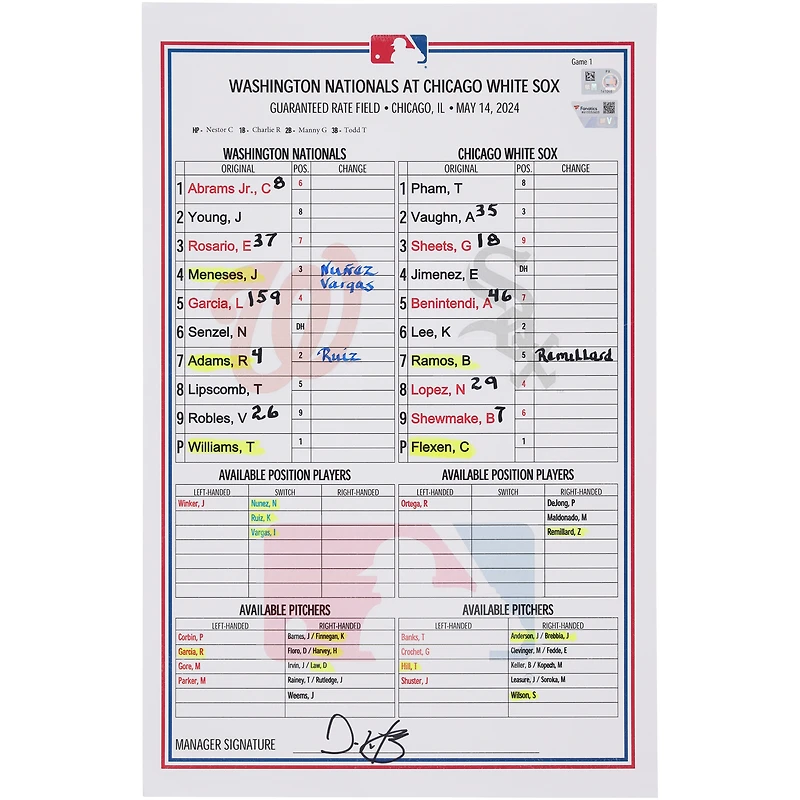 Game 1
WASHINGTON NATIONALS AT CHICAGO WHITE SOX
GUARANTEED RATE FIELD • CHICAGO, IL • MAY 14, 2024
HP - Nestor C 1B - Charlie R 2B - Manny G 3B - Todd T
Fanatics
WASHINGTON NATIONALS
ORIGINAL POS. CHANGE
1 Abrams Jr., C 8 6
2 Young, J 8
3 Rosario, E 37 7
4 Meneses, J 3 Nuñez
Vargas
5 Garcia, L 159 4
6 Senzel, N DH
7 Adams, R 4 2 Ruiz
8 Lipscomb, T 5
9 Robles, V 26 9
P Williams, T 1
CHICAGO WHITE SOX
ORIGINAL POS. CHANGE
1 Pham, T 8
2 Vaughn, A 35 3
3 Sheets, G 18 9
4 Jimenez, E DH
5 Benintendi, A 46 7
6 Lee, K 2
7 Ramos, B 5 Remillard
8 Lopez, N 29 4
9 Shewmake, B 7 6
P Flexen, C 1
AVAILABLE POSITION PLAYERS
LEFT-HANDED SWITCH RIGHT-HANDED
Winker, J Nunez, N
Ruiz, K
Vargas, I
AVAILABLE POSITION PLAYERS
LEFT-HANDED SWITCH RIGHT-HANDED
Ortega, R DeJong, P
Maldonado, M
Remillard, Z
AVAILABLE PITCHERS
LEFT-HANDED RIGHT-HANDED
Corbin, P Barnes, J / Finnegan, K
Garcia, R Floro, D / Harvey, H
Gore, M Irvin, J / Law, D
Parker, M Rainey, T / Rutledge, J
Weems, J
AVAILABLE PITCHERS
LEFT-HANDED RIGHT-HANDED
Banks, T Anderson, J / Brebbia, J
Crochet, G Clevinger, M / Fedde, E
Hill, T Keller, B / Kopech, M
Shuster, J Leasure, J / Soroka, M
Wilson, S
MANAGER SIGNATURE